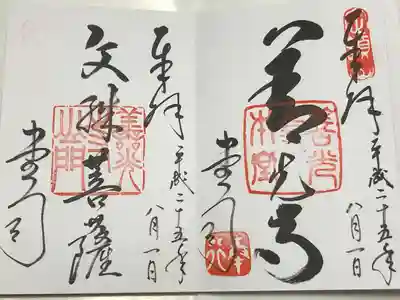 奉拝
平成二十五年
八月一日
善光寺
堂司
奉拝
平成二十五年
八月一日
文殊菩薩
堂司